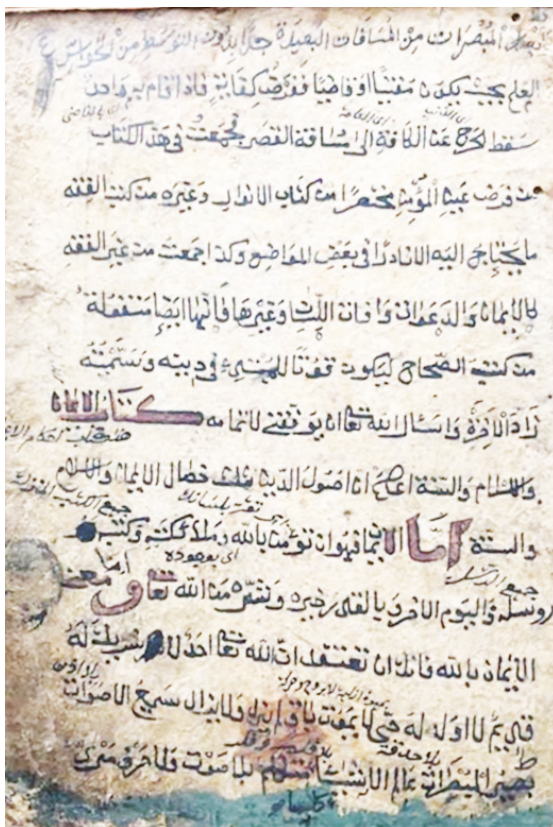 المبصرات من المسافات البعيدة جدا بدون التوسط من الحواس
العلم بحيث يكون مفتيا او قاضيا ففرض كفاية فاذا قام به واحد
سقط الحرج عن الكافة الى مسافة القصر فجمعت في هذا الكتاب
من فرض عين المؤمن مختصرا من كتاب الانوار وغيره من كتب الفقه
ما يحتاج اليه الا نادرا في بعض المواضع وكذا جمعت من غير الفقه
كالايمان والدعوات وافات اللسان وغيرها فانها ايضا منقولة
من كتب الصحاح ليكون قوتا للمبتدئ في دينه وسميته
زاد الاخرة واسئال الله تعالى ان يوفقني لاتمامه كتاب الايمان
والاسلام والسنة اعلم ان اصول الدين ثلث خصال الايمان والاسلام
والسنة اما الايمان فهو ان تؤمن بالله وملائكته وكتبه
ورسله واليوم الاخر وبالقدر خيره وشره من الله تعالى ومعنى
الايمان بالله فانك ان تعتقد ان الله تعالى احد لا شريك له
قديم لا اول له حي لا يموت باق لم يزل ولا يزال سميع الاصوات
بصير المبصرات عالم الاشياء متكلم بلا صوت ولا حرف مرئ